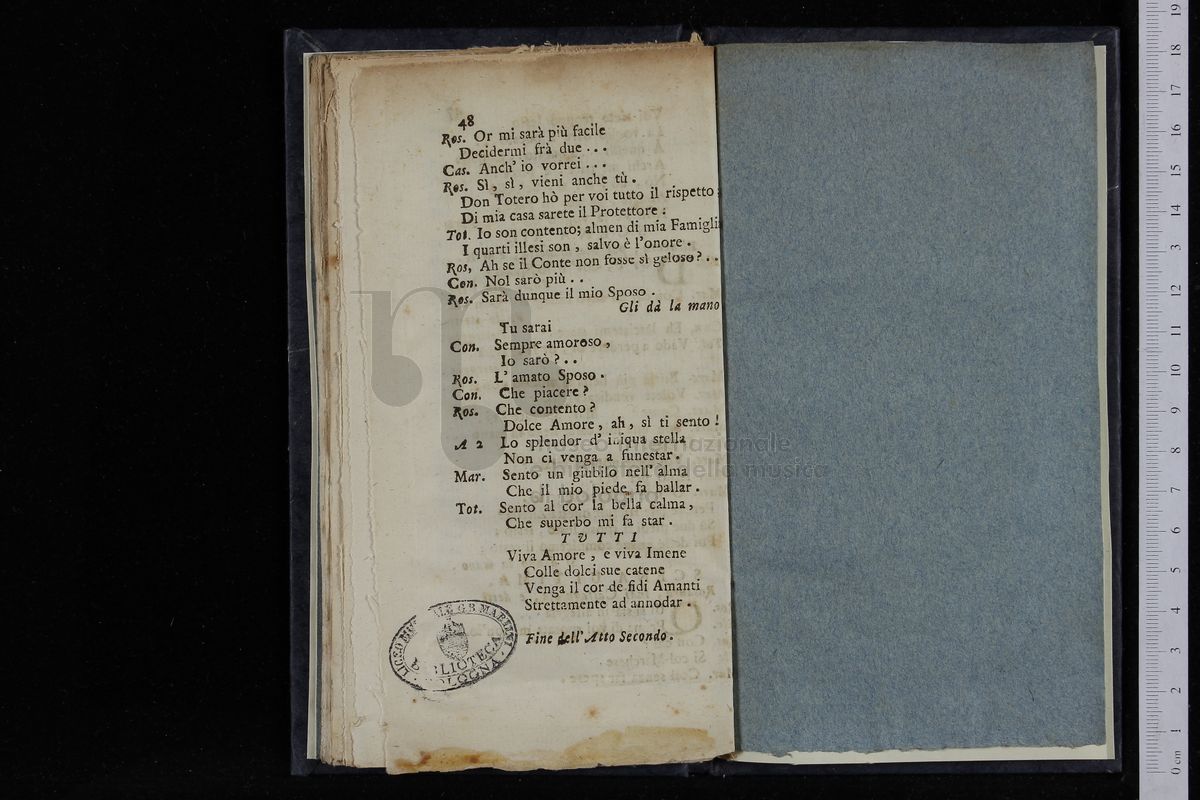 48
Ros. Or mi sarà più facile
Decidermi frà due . . .
Cas. Anch' io vorrei . . .
Ros. Sì, sì, vieni anche tù.
Don Totero hò per voi tutto il rispetto:
Di mia casa sarete il Protettore:
Tot. Io son contento; almen di mia Famigli
I quarti illesi son, salvo è l'onore.
Ros, Ah se il Conte non fosse sì geloso? . .
Con. Nol sarò più . .
Ros. Sarà dunque il mio Sposo.
Gli dà la mano
Tu sarai
Con. Sempre amoroso,
Io sarò? . .
Ros. L' amato Sposo.
Con. Che piacere?
Ros. Che contento?
Dolce Amore, ah, sì ti sento!
A 2 Lo splendor d' iniqua stella
Non ci venga a funestar.
Mar. Sento un giubilo nell' alma
Che il mio piede fa ballar.
Tot. Sento al cor la bella calma,
Che superbo mi fa star.
TUTTI
Viva Amore, e viva Imene
Colle dolci sue catene
Venga il cor de fidi Amanti
Strettamente ad annodar.
Fine dell' Atto Secondo.
LICEO MUSICALE G.B. MARTINI
BIBLIOTECA
BOLOGNA
museo internazionale
e biblioteca della musica
di bologna
0 cm 1 2 3 4 5 6 7 8 9 10 11 12 13 14 15 16 17 18 19